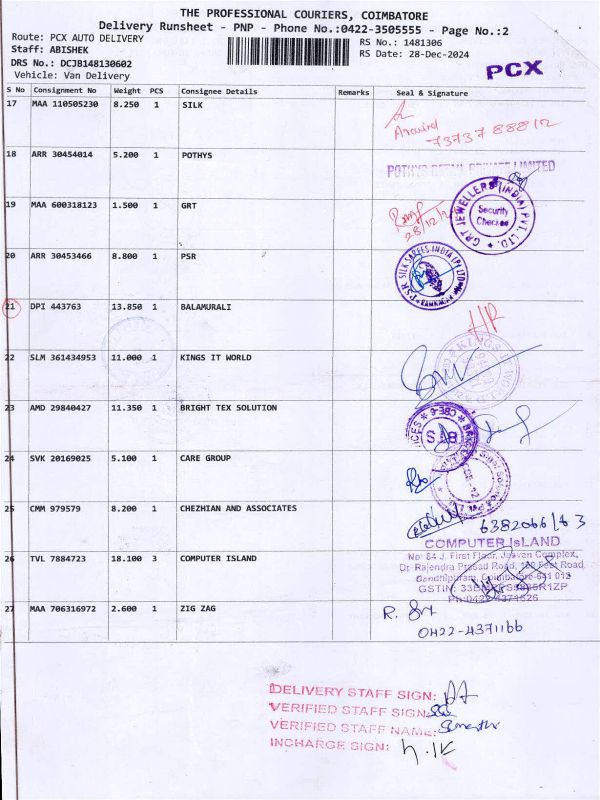 THE PROFESSIONAL COURIERS, COIMBATORE
Delivery Runsheet - PNP - Phone No.:0422-3505555 - Page No.:2
Route: PCX AUTO DELIVERY
RS No.: 1481306
Staff: ABISHEK
RS Date: 28-Dec-2024
DRS No.: DCJB148130602
Vehicle: Van Delivery
PCX
S No Consignment No Weight PCS Consignee Details Remarks Seal & Signature
17 MAA 110505230 8.250 1 SILK
Aravind
18 ARR 30454014 5.200 1 POTHYS
POTHYS RETAIL PRIVATE LIMITED
19 MAA 600318123 1.500 1 GRT
28/12/2
GRT JEWELLERS (INDIA) PVT. LTD.
Security
Checked
20 ARR 30453466 8.800 1 PSR
PSR SILK SAREES INDIA (P) LTD
21 DPI 443763 13.850 1 BALAMURALI
22 SLM 361434953 11.000 1 KINGS IT WORLD
KINGS IT WORLD
23 AMD 29840427 11.350 1 BRIGHT TEX SOLUTION
BTS
CBE-6
24 SVK 20169025 5.100 1 CARE GROUP
25 CMM 979579 8.200 1 CHEZHIAN AND ASSOCIATES
26 TVL 7884723 18.100 3 COMPUTER ISLAND
COMPUTER IsLAND
No: 84 J, First Floor, Jeevan Complex,
Dr. Rajendra Prasad Road, 100 Feet Road,
Gandhipuram, Coimbatore-641 012
GSTIN:
27 MAA 706316972 2.600 1 ZIG ZAG
0422-4371166
DELIVERY STAFF SIGN:
VERIFIED STAFF SIGN:
VERIFIED STAFF NAME:
INCHARGE SIGN: